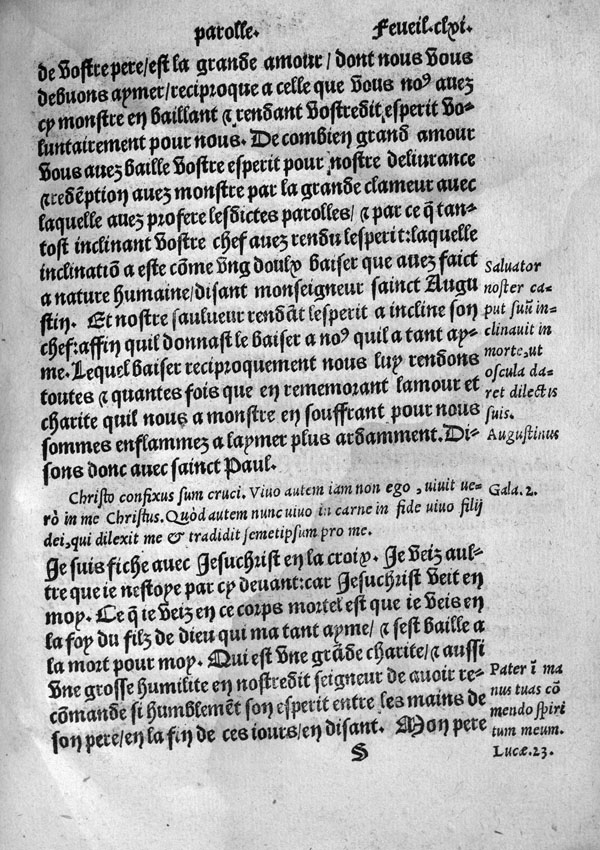 parolle. Feueil.clxi.
de vostre pere/est la grande amour/ dont nous vous
debuons aymer/reciproque a celle que vous noꝰ auez
cy monstre en baillant ⁊ rendant vostredit esperit vo-
luntairement pour nous. De combien grand amour
vous auez baille vostre esperit pour nostre deliurance
⁊ redēption auez monstre par la grande clameur auec
laquelle auez profere lesdictes parolles/ ⁊ par ce q̄ tan-
tost inclinant vostre chef auez rendu lesperit:laquelle
inclinatiō a este cōme vng doulx baiser que auez faict
a nature humaine/disant monseigneur sainct Augu
stin. Et nostre saulueur rendāt lesperit a incline son
chef:affin quil donnast le baiser a noꝰ quil a tant ay-
me. Lequel baiser reciproquement nous luy rendons
toutes ⁊ quantes fois que en rememorant lamour et
charite quil nous a monstre en souffrant pour nous
sommes enflammez a laymer plus ardamment. Di-
sons donc auec sainct Paul.
Saluator
noster ca-
put suū in-
clinauit in
morte,ut
oscula da-
ret dilectis
suis.
Augustinus
Christo confixus sum cruci. Viuo autem iam non ego , uiuit ue-
rò in me Christus. Quòd autem nunc uiuo in carne in fide uiuo filij
dei, qui dilexit me & tradidit semetipsum pro me.
Gala. 2.
Je suis fiche auec Jesuchrist en la croix. Je veiz aul-
tre que ie nestoye par cy deuant:car Jesuchrist veit en
moy. Ce q̄ ie veiz en ce corps mortel est que ie veis en
la foy du filz de dieu qui ma tant ayme/ ⁊ sest baille a
la mort pour moy. Qui est vne grāde charite/ ⁊ aussi
vne grosse humilite en nostredit seigneur de auoir re-
cōmande si humblemēt son esperit entre les mains de
son pere/en la fin de ces iours/en disant. Mon pere
Pater ī ma
nus tuas cō
mendo spiri
tum meum.
Lucæ. 23.
S